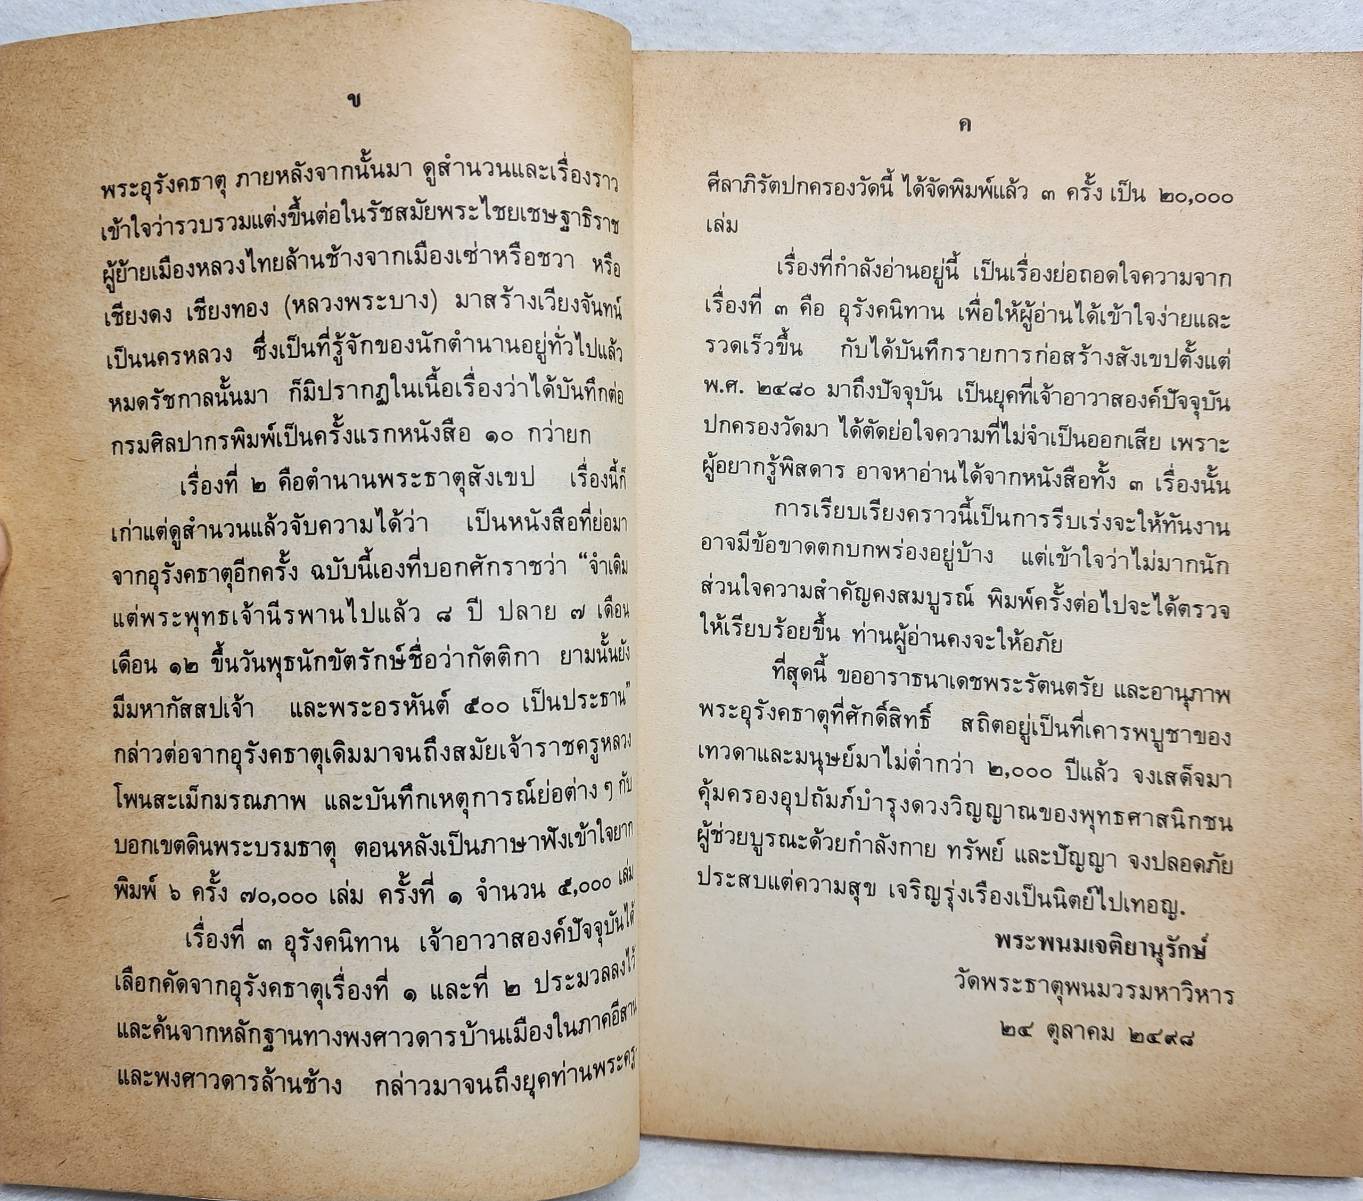 ข
พระอุรังคธาตุ ภายหลังจากนั้นมา ดูสำนวนและเรื่องราว
เข้าใจว่ารวบรวมแต่งขึ้นต่อในรัชสมัยพระไชยเชษฐาธิราช
ผู้ย้ายเมืองหลวงไทยล้านช้างจากเมืองเซ่าหรือชวา หรือ
เชียงดง เชียงทอง (หลวงพระบาง) มาสร้างเวียงจันทน์
เป็นนครหลวง ซึ่งเป็นที่รู้จักของนักตำนานอยู่ทั่วไปแล้ว
หมดรัชกาลนั้นมา ก็มิปรากฏในเนื้อเรื่องว่าได้บันทึกต่อ
กรมศิลปากรพิมพ์เป็นครั้งแรกหนังสือ ๑๐ กว่ายก
เรื่องที่ ๒ คือตำนานพระธาตุสังเขป เรื่องนี้ก็
เก่าแต่ดูสำนวนแล้วจับความได้ว่า เป็นหนังสือที่ย่อมา
จากอุรังคธาตุอีกครั้ง ฉบับนี้เองที่บอกศักราชว่า “จำเดิม
แต่พระพุทธเจ้านีรพานไปแล้ว ๘ ปี ปลาย ๗ เดือน
เดือน ๑๒ ขึ้นวันพุธนักขัตรักษ์ชื่อว่ากัตติกา ยามนั้นยัง
มีมหากัสสปเจ้า และพระอรหันต์ ๕๐๐ เป็นประธาน”
กล่าวต่อจากอุรังคธาตุเดิมมาจนถึงสมัยเจ้าราชครูหลวง
โพนสะเม็กมรณภาพ และบันทึกเหตุการณ์ย่อต่าง ๆ กับ
บอกเขตดินพระบรมธาตุ ตอนหลังเป็นภาษาฟังเข้าใจยาก
พิมพ์ ๖ ครั้ง ๗๐,๐๐๐ เล่ม ครั้งที่ ๑ จำนวน ๕,๐๐๐ เล่ม
เรื่องที่ ๓ อุรังคนิทาน เจ้าอาวาสองค์ปัจจุบันได้
เลือกคัดจากอุรังคธาตุเรื่องที่ ๑ และที่ ๒ ประมวลลงไว้
และค้นจากหลักฐานทางพงศาวดารบ้านเมืองในภาคอีสาน
และพงศาวดารล้านช้าง กล่าวมาจนถึงยุคท่านพระครู
ค
ศีลาภิรัตปกครองวัดนี้ ได้จัดพิมพ์แล้ว ๓ ครั้ง เป็น ๒๐,๐๐๐
เล่ม
เรื่องที่กำลังอ่านอยู่นี้ เป็นเรื่องย่อถอดใจความจาก
เรื่องที่ ๓ คือ อุรังคนิทาน เพื่อให้ผู้อ่านได้เข้าใจง่ายและ
รวดเร็วขึ้น กับได้บันทึกรายการก่อสร้างสังเขปตั้งแต่
พ.ศ. ๒๔๘๐ มาถึงปัจจุบัน เป็นยุคที่เจ้าอาวาสองค์ปัจจุบัน
ปกครองวัดมา ได้ตัดย่อใจความที่ไม่จำเป็นออกเสีย เพราะ
ผู้อยากรู้พิสดาร อาจหาอ่านได้จากหนังสือทั้ง ๓ เรื่องนั้น
การเรียบเรียงคราวนี้เป็นการรีบเร่งจะให้ทันงาน
อาจมีข้อขาดตกบกพร่องอยู่บ้าง แต่เข้าใจว่าไม่มากนัก
ส่วนใจความสำคัญคงสมบูรณ์ พิมพ์ครั้งต่อไปจะได้ตรวจ
ให้เรียบร้อยขึ้น ท่านผู้อ่านคงจะให้อภัย
ที่สุดนี้ ขออาราธนาเดชพระรัตนตรัย และอานุภาพ
พระอุรังคธาตุที่ศักดิ์สิทธิ์ สถิตอยู่เป็นที่เคารพบูชาของ
เทวดาและมนุษย์มาไม่ต่ำกว่า ๒,๐๐๐ ปีแล้ว จงเสด็จมา
คุ้มครองอุปถัมภ์บำรุงดวงวิญญาณของพุทธศาสนิกชน
ผู้ช่วยบูรณะด้วยกำลังกาย ทรัพย์ และปัญญา จงปลอดภัย
ประสบแต่ความสุข เจริญรุ่งเรืองเป็นนิตย์ไปเทอญ.
พระพนมเจติยานุรักษ์
วัดพระธาตุพนมวรมหาวิหาร
๒๔ ตุลาคม ๒๔๙๘